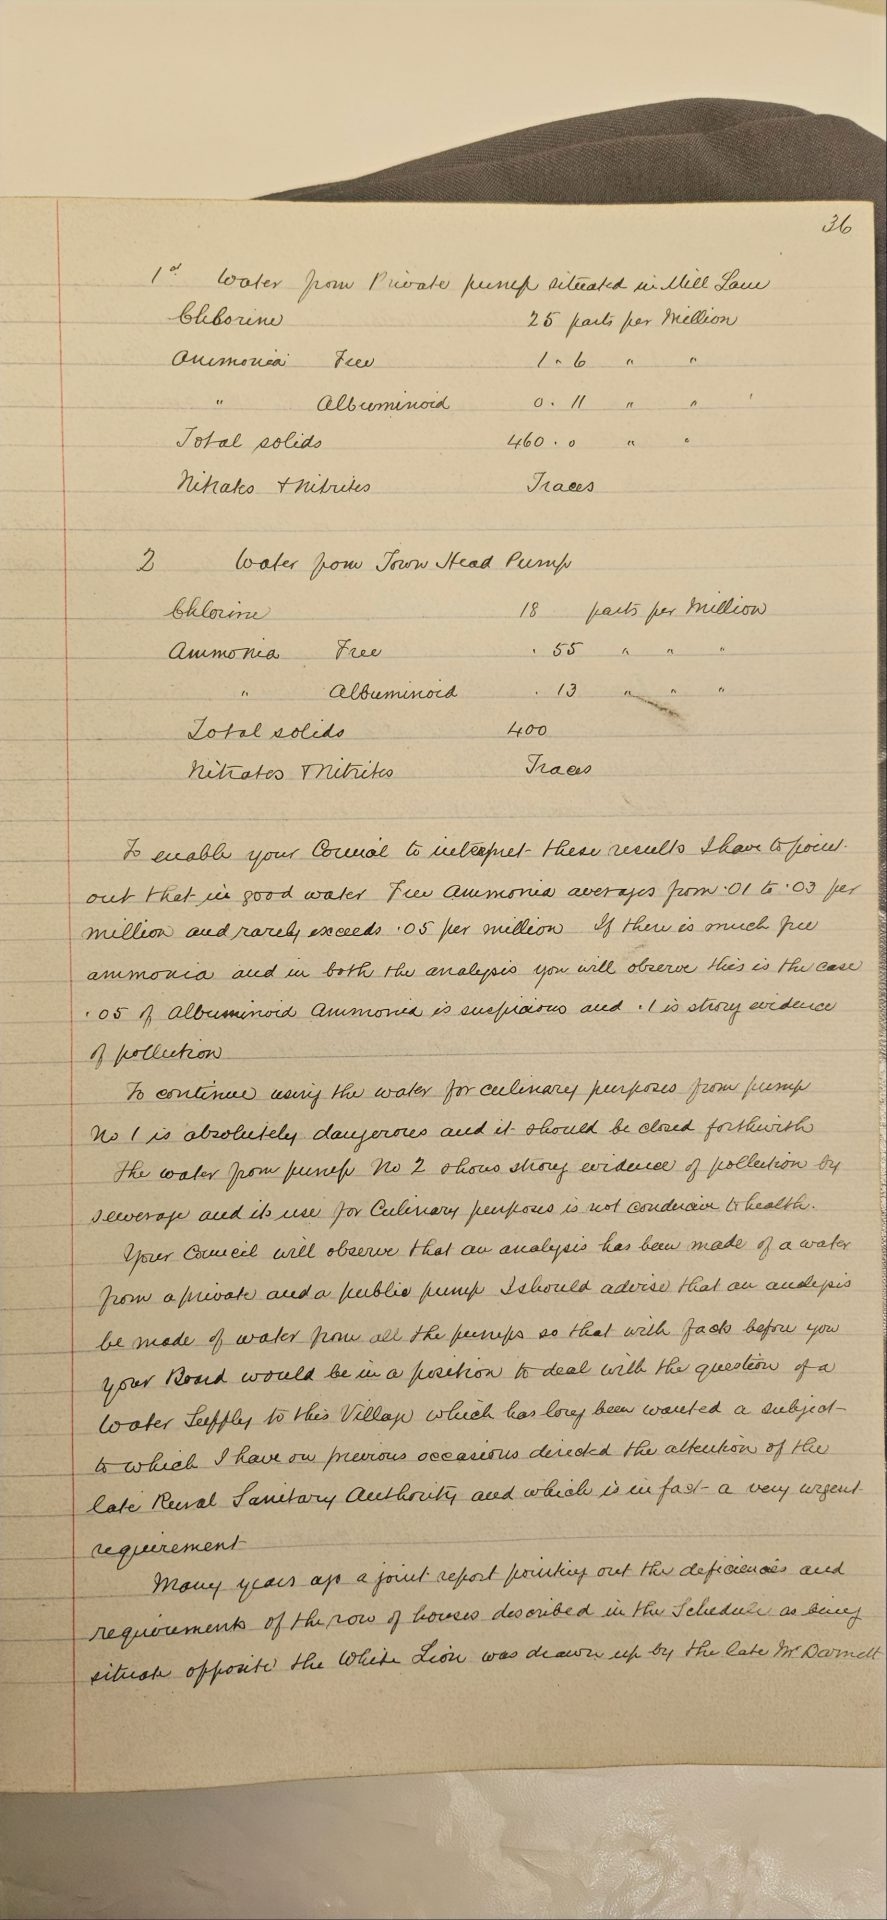 36
1st Water from Private pump situated in Mill Lane
Chlorine 25 parts per Million
Ammonia Free 1.6 " "
" Albuminoid 0.11 " "
Total solids 460.0 " "
Nitrates & Nitrites Traces
2 Water from Town Head Pump
Chlorine 18 parts per Million
Ammonia Free .55 " " "
" Albuminoid .13 " " "
Total solids 400
Nitrates & Nitrites Traces
To enable your Council to interpret these results I have to point
out that in good water Free Ammonia averages from .01 to .03 per
million and rarely exceeds .05 per million If there is much free
ammonia and in both the analysis you will observe this is the case
.05 of Albuminoid Ammonia is suspicious and .1 is strong evidence
of pollution
To continue using the water for culinary purposes from pump
No 1 is absolutely dangerous and it should be closed forthwith
The water from pump No 2 shows strong evidence of pollution by
sewerage and its use for Culinary purposes is not conducive to health.
Your Council will observe that an analysis has been made of a water
from a private and a public pump I should advise that an analysis
be made of water from all the pumps so that with facts before you
your Board would be in a position to deal with the question of a
Water Supply to this Village which has long been wanted a subject
to which I have on previous occasions directed the attention of the
late Rural Sanitary Authority and which is in fact a very urgent
requirement
Many years ago a joint report pointing out the deficiencies and
requirements of the row of houses described in the Schedule as being
situate opposite the White Lion was drawn up by the late Mr